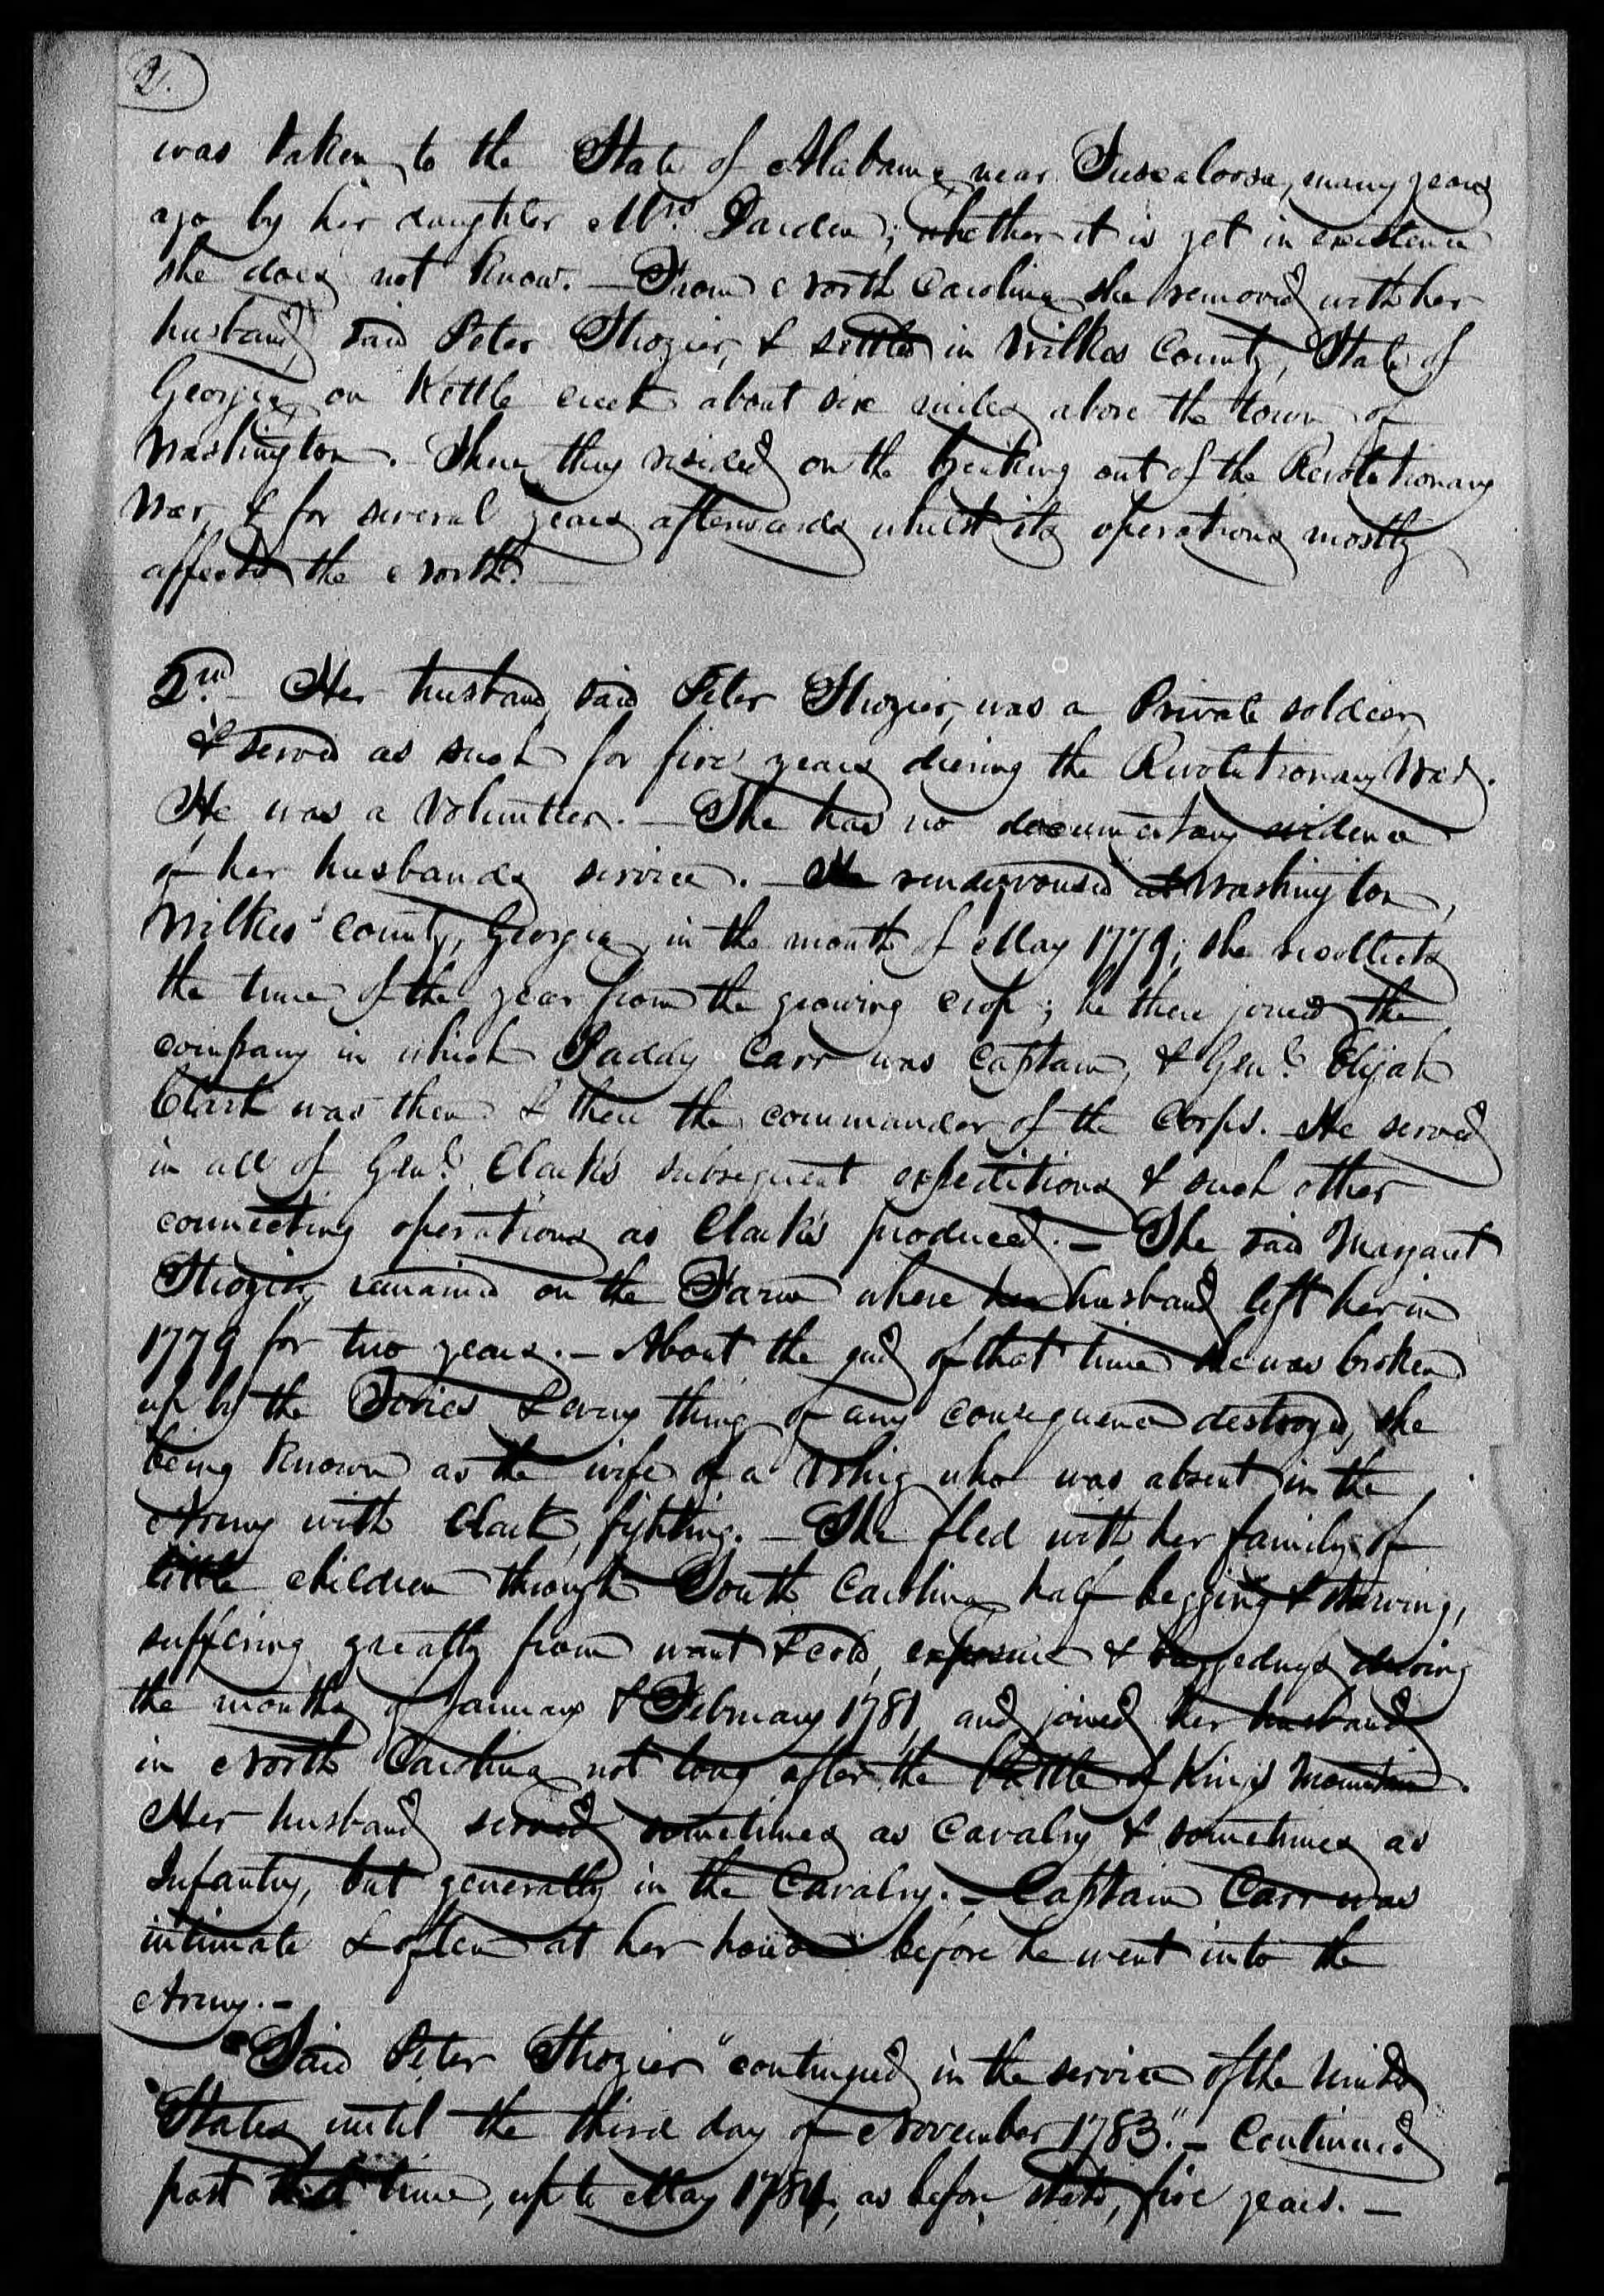 2.
was taken to the State of Alabama near Tuscaloosa, many years
ago by her daughter Mrs. Darden; whether it is yet in existence
she does not know. — From North Carolina she removed with her
husband, said Peter Strozier, & settled in Wilkes County, State of
Georgia, on Kettle creek about six miles above the town of
Washington. There they resided on the breaking out of the Revolutionary
War, & for several years afterwards whilst its operations mostly
affected the North. —
2nd. — Her husband, said Peter Strozier, was a Private soldier,
& served as such for five years during the Revolutionary War.
He was a Volunteer. — She has no documentary evidence
of her husbands service. — He rendezvoused at Washington,
Wilkes county, Georgia, in the month of May 1779; she recollects
the time of the year from the growing crop; he there joined the
company in which Paddy Carr was Captain, & Genl. Elijah
Clark was then & there the commander of the Corps. He served
in all of Genl. Clark's subsequent expeditions & such other
connecting operations as Clark's produced. — She said Margaret
Strozier, remained on the Farm where her husband left her in
1779 for two years. — About the end of that time she was broken
up by the Tories & every thing of any consequence destroyed, she
being known as the wife of a Whig who was absent in the
Army with Clark, fighting. — She fled with her family of
little children through South Carolina, half begging & starving,
suffering greatly from want & cold, exposure & raggedness during
the months of January & February 1781, and joined her husband
in North Carolina not long after the Battle of King's Mountain.
Her husband served sometimes as Cavalry & sometimes as
Infantry, but generally in the Cavalry. — Captain Carr was
intimate & often at her house before he went into the
Army. —
"Said Peter Strozier "continued in the service of the United
"States until the third day of November 1783." — Continued
past that time, up to May 1784, as before stated, five years. —